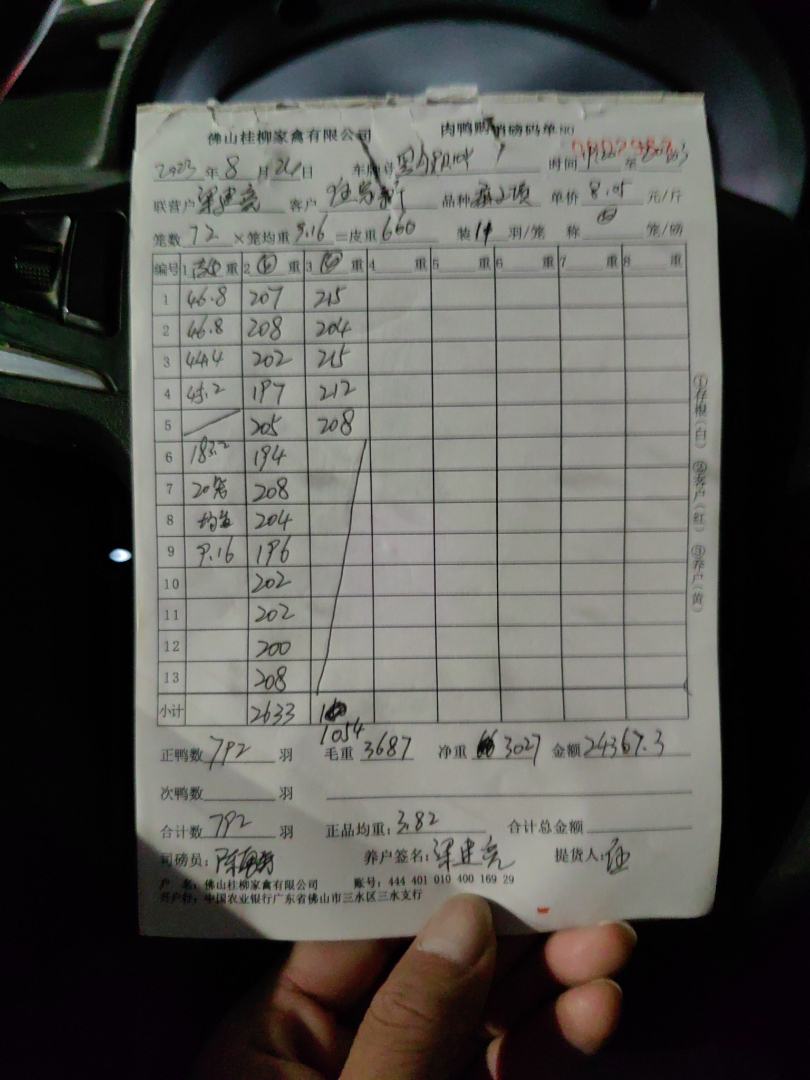 佛山桂柳家禽有限公司 肉鸭购销磅码单 №
2023年8月 日 车牌号 时间 至
联营户 梁建亮 客户 品种 单价 8.05 元/斤
笼数 72 ×笼均重 9.16 =皮重 660 装 11 羽/笼 称 笼/磅
编号 1 重 2 重 3 重 4 重 5 重 6 重 7 重 8 重
1 46.8 207 215
2 46.8 208 204
3 44.4 202 215
4 45.2 197 212
5 205 208
6 183.2 194
7 20笼 208
8 204
9 9.16 196
10 202
11 202
12 200
13 208
小计 2633 1054
正鸭数 792 羽 毛重 3687 净重 3027 金额 24367.3
次鸭数 羽
合计数 792 羽 正品均重: 3.82 合计总金额
司磅员: 养户签名: 梁建亮 提货人:
户 名: 佛山桂柳家禽有限公司 账号: 444 401 010 400 169 29
开户行: 中国农业银行广东省佛山市三水区三水支行
①存根(白) ②客户(红) ③养户(黄)